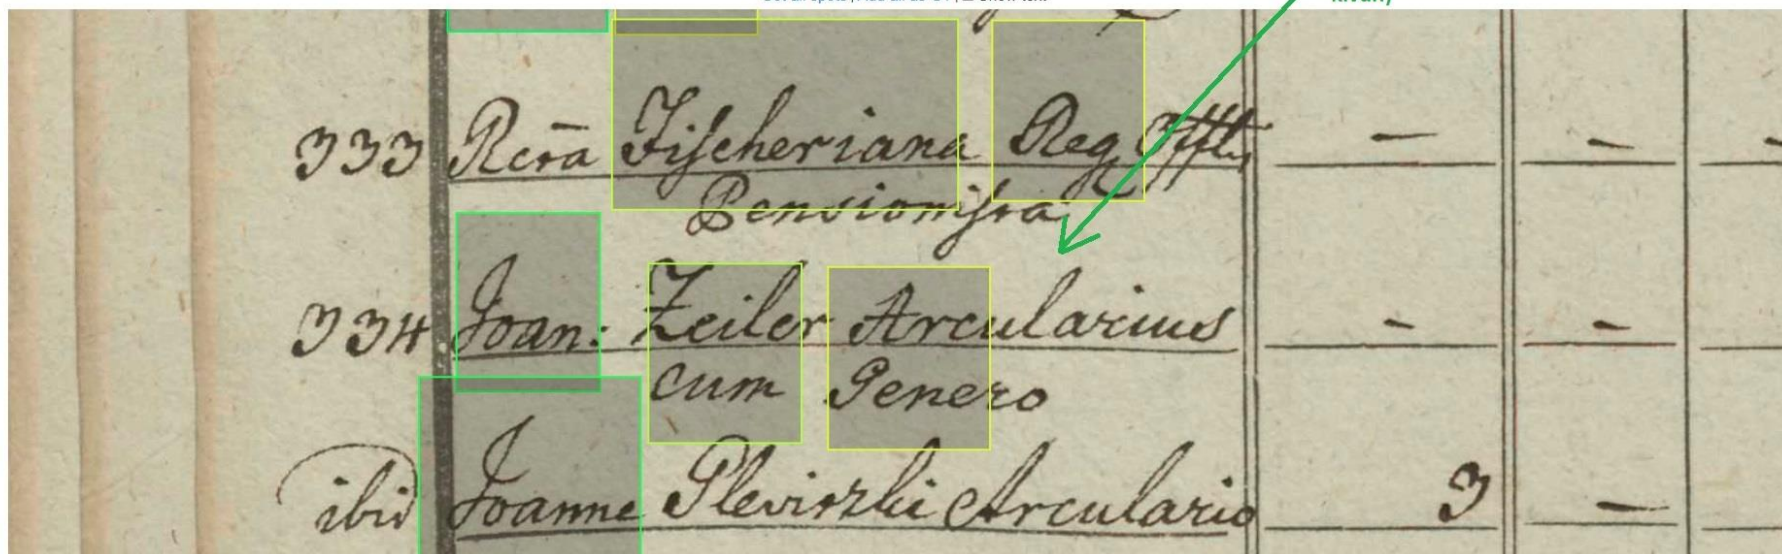 333 Rcra Fischeriana Reg
Pensionistra
334 Joan: Zeiler Arcularius
cum Genero
ibid Joanne Pleviszki Arculario 3